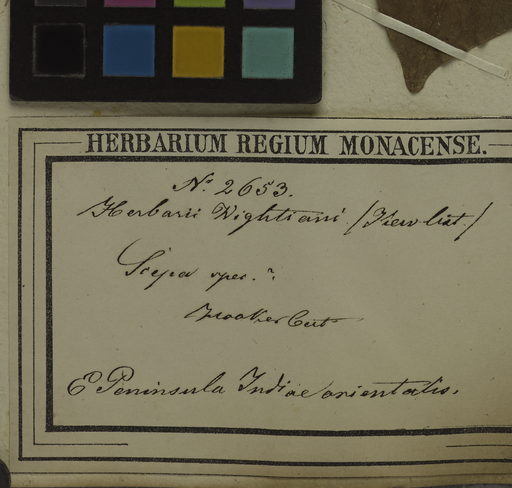 HERBARIUM REGIUM MONACENSE.
No. 2653.
Herbarii Wightiani (Kew list.)
Scepa spec.?
Hooker
E Peninsula Indiae orientalis.